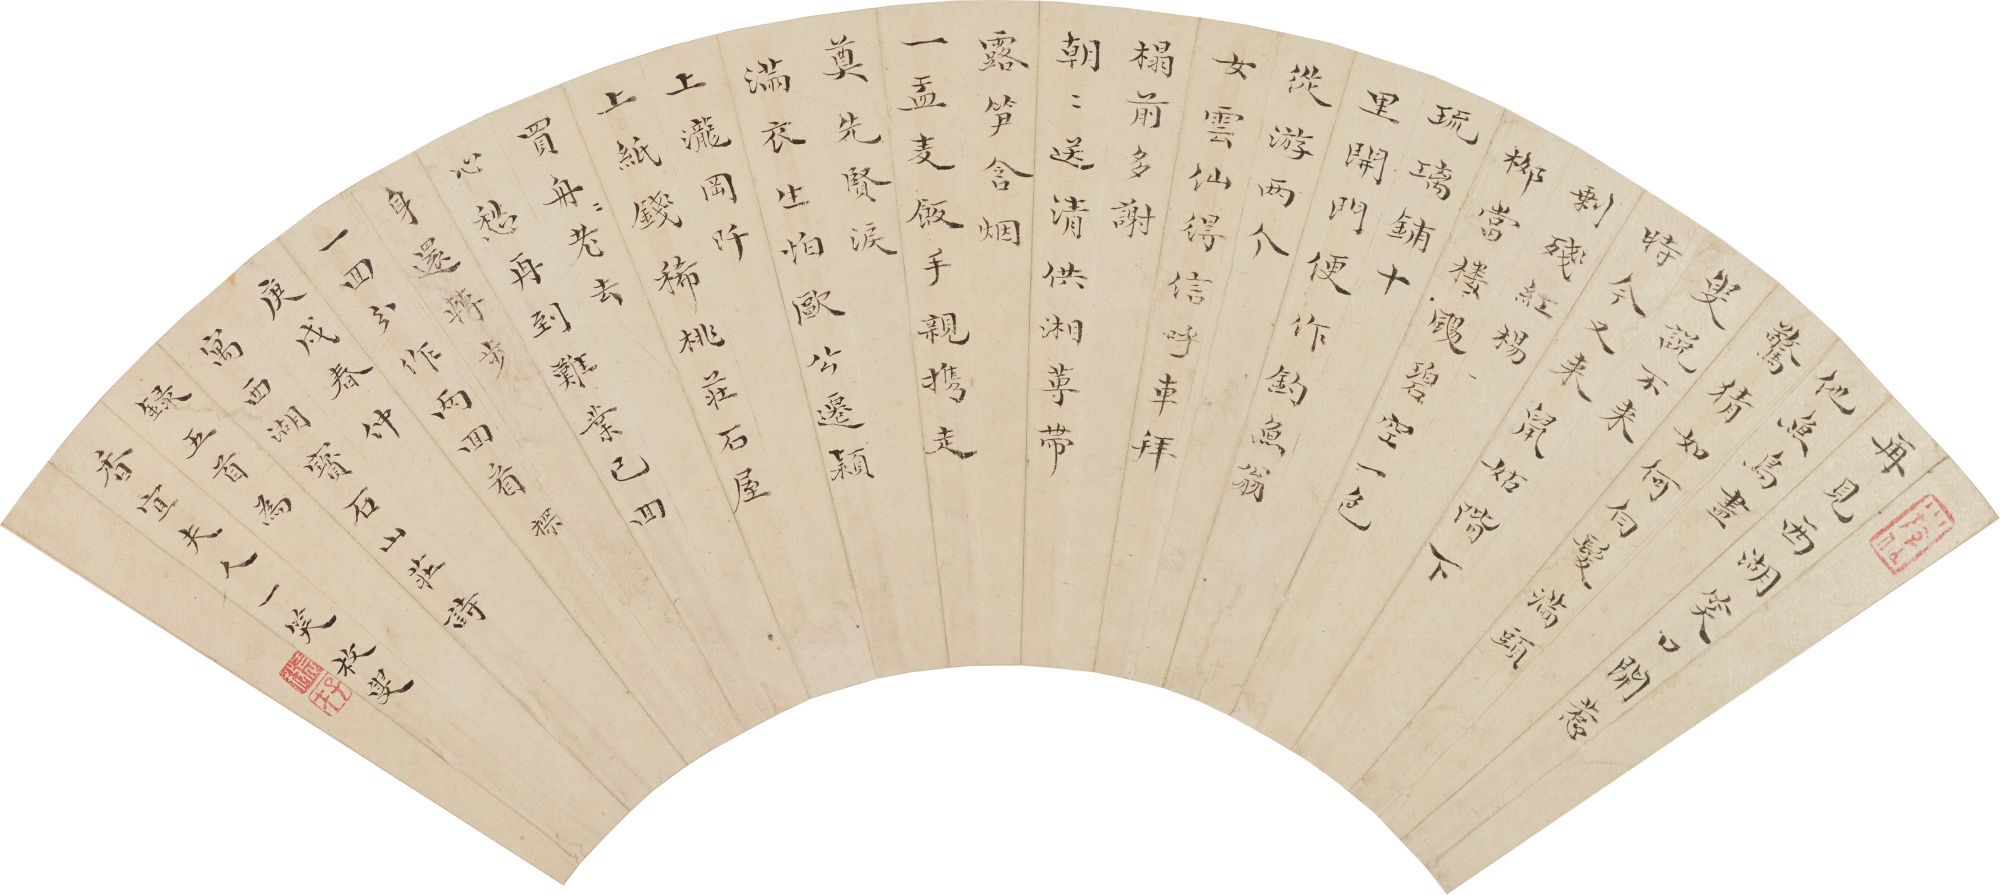 再見西湖笑口開惹
他魚鳥盡
驚猜如何白髮滿頭
叟說不来
時今又来鼠姑階下
剩殘紅楊
柳當樓颺碧空一色
琉璃鋪十
里開門便作釣魚翁
從游兩个
女雲仙得信呼車拜
榻前多謝
朝〻送清供湘蓴帶
露笋含烟
一盂麦飯手親携走
奠先賢淚
滿衣生怕歐公遷潁
上瀧岡阡
上紙錢稀桃莊石屋
買舟〻老去
心愁再到難業已回
身還轉步
一回分作兩回看
庚戌春仲
寓西湖寶石山莊詩
録五首為
香宜夫人一笑
枚叟